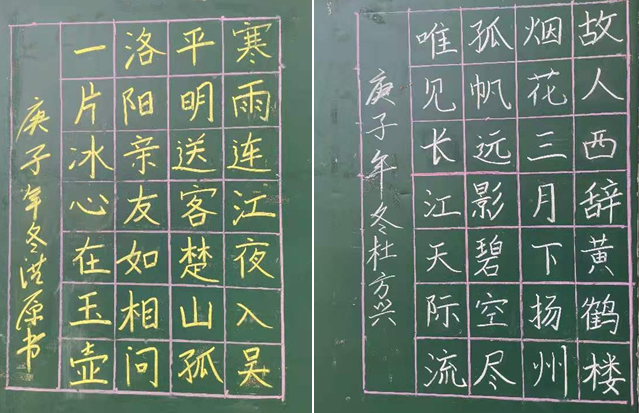 寒雨连江夜入吴
平明送客楚山孤
洛阳亲友如相问
一片冰心在玉壶
庚子年冬洪原书
故人西辞黄鹤楼
烟花三月下扬州
孤帆远影碧空尽
唯见长江天际流
庚子年冬杜方兴